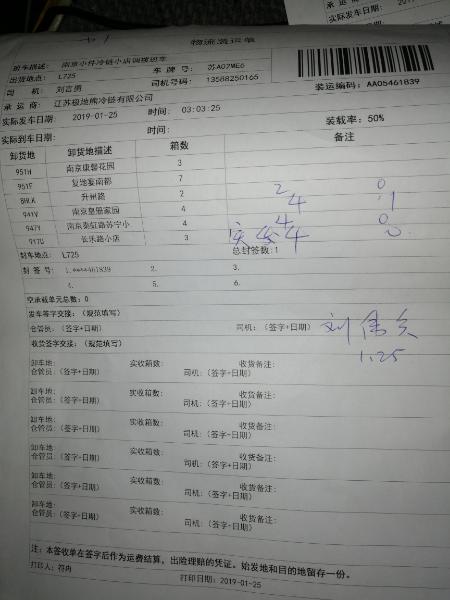 物流装运单
班车描述: 南京小件冷链小店调拨班车
出货地点: L725 车 牌 号: 苏A02ME6
司 机: 刘言勇 司机号码: 13588250165
承 运 商: 江苏极地熊冷链有限公司 装运编码: AA05461839
实际发车日期: 2019-01-25 时间: 03:03:25
实际到车日期: 时间: 装载率: 50%
卸货地 卸货地描述 箱数 备注
951H 南京康馨花园 3
951F 复地宴南都 7
8HLK 升州路 2 2 0
941V 南京皇册家园 4 4 1
947Y 南京泰虹路苏宁小 4 4 0
917U 长乐路小店 3 实发 4 0
封车地点: L725 总封签数:1
封 签 号: 1.****461839 2. 3.
4. 5. 6.
空承载单元总数: 0
发车签字交接: (规范填写)
仓管员: (签字+日期) 司机: (签字+日期) 刘
1.25
收货签字交接: (规范填写)
卸车地: 实收箱数: 收货备注:
仓管员: (签字+日期) 司机: (签字+日期)
卸车地: 实收箱数: 收货备注:
仓管员: (签字+日期) 司机: (签字+日期)
卸车地 实收箱数: 收货备注:
仓管员: (签字+日期) 司机: (签字+日期)
卸车地: 实收箱数: 收货备注:
仓管员: (签字+日期) 司机: (签字+日期)
卸车地: 实收箱数: 收货备注:
仓管员: (签字+日期) 司机: (签字+日期)
卸车地: 实收箱数: 收货备注:
仓管员: (签字+日期) 司机: (签字+日期)
注: 本签收单在签字后作为运费结算, 出险理赔的凭证。始发地和目的地留存一份。
打印人: 符冉 打印日期: 2019-01-25